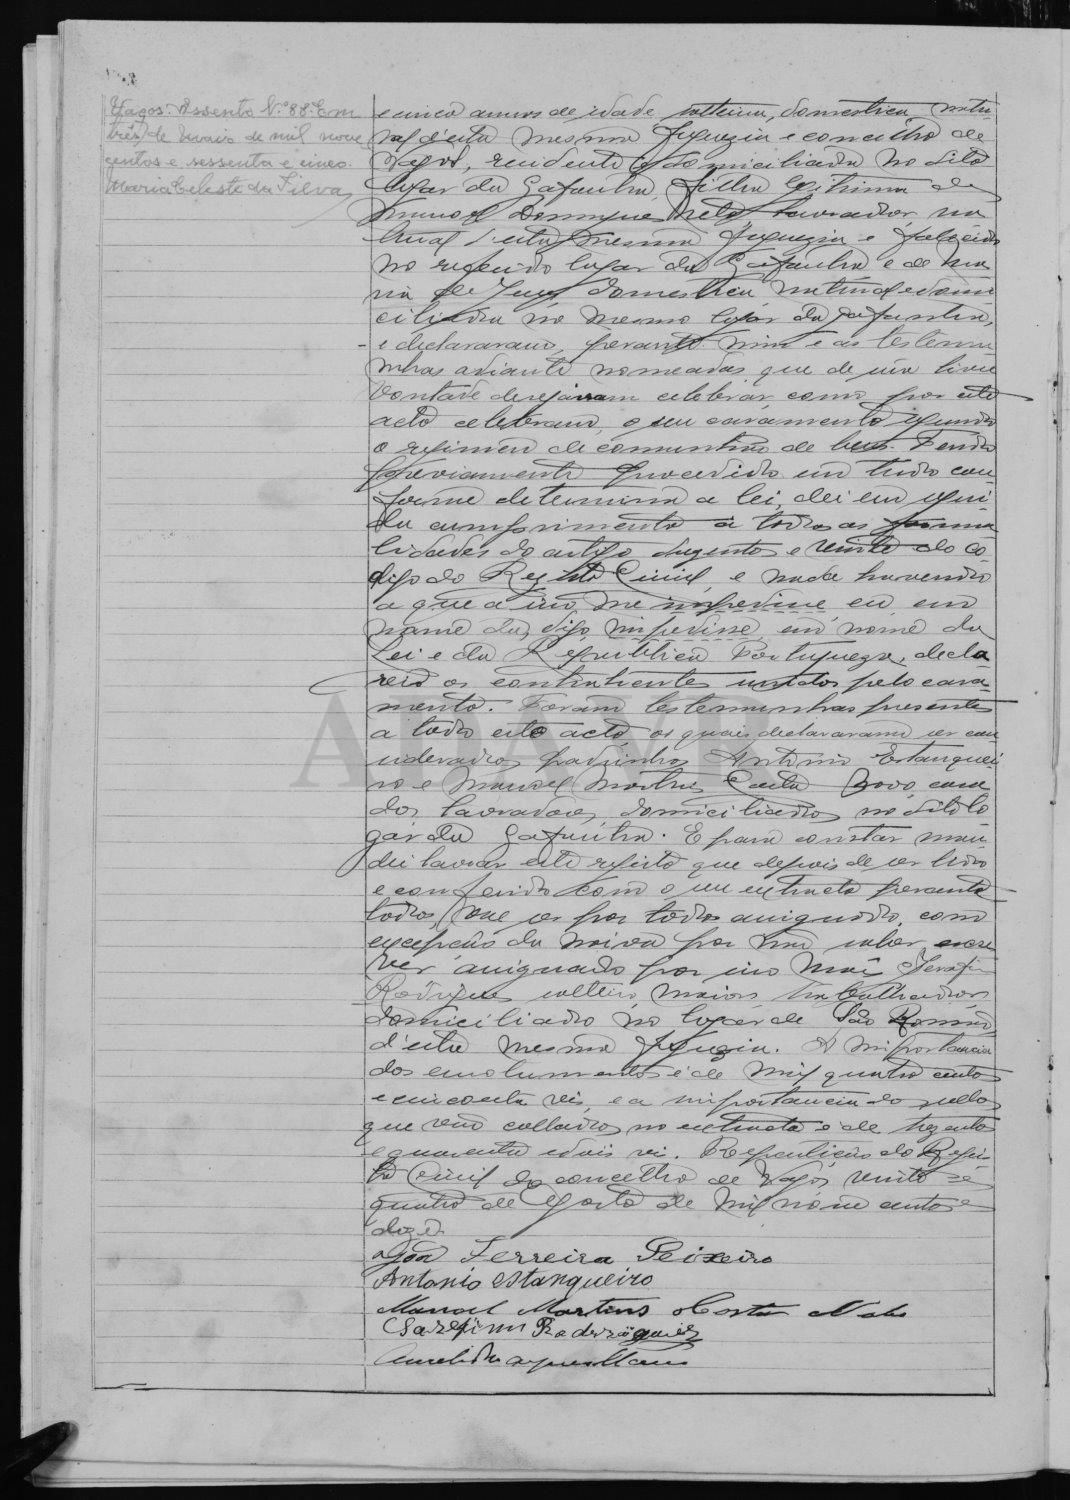 Vagos. Assento N.º 88. Em
três de Maio de mil nove
centos e sessenta e cinco.
Maria Celeste da Silva
e cinco annos de idade solteira, domestica, natu
ral d'esta mesma freguezia e concelho de
Vagos, residente e domiciliada no dito
lugar da Gafanha, filha legitima de
Manoel Domingues Neto, lavrador, na
tural d'esta mesma freguezia e fallecido
no referido lugar da Gafanha e de Ma
ria de Jesus, domestica, natural e domi
ciliada no mesmo lugar da Gafanha,
e declararam, perante mim e as testemu
nhas adiante nomeadas, que de sua livre
vontade desejavam celebrar, como por este
acto celebram, o seu casamento segundo
o regimen de comunhão de bens. Tendo
previamente procedido em tudo con
forme determina a lei, dei em segui
da cumprimento a todas as forma
lidades do artigo duzentos e vinte do Co
digo do Registo Civil, e nada havendo
a que a isso me impedisse, eu, em
nome da, digo, impedisse, em nome da
Lei e da Republica Portugueza, decla
rei os contrahentes unidos pelo casa
mento. Foram testemunhas presentes
a todo este acto, os quais declararam ser con
siderados padrinhos Antonio Estanquei
ro e Manoel Martins Costa Novo, casa
dos, lavradores, domiciliados no dito lo
gar da Gafanha. E para constar man
dei lavrar este registo que depois de ser lido
e conferido com o seu extracto perante
todos, vae ser por todos assignado, com
excepção da noiva por não saber escre
ver assignando por isso Serafim
Rodrigues solteiro, maior, trabalhador,
domiciliado no lugar de São Romão
d'esta mesma freguezia. A importancia
dos emolumentos é de mil quatro centos
e cincoenta reis, e a importancia do sello
que vem collado no extracto é de trezentos
e quarenta e dois reis. Repartição do Regis
to Civil do concelho de Vagos, vinte e
quatro de Agosto de mil nove centos e
doze.
João Ferreira Teixeiro
Antonio Estanqueiro
Manoel Martins Costa Novo
Sarafim Rodrigues